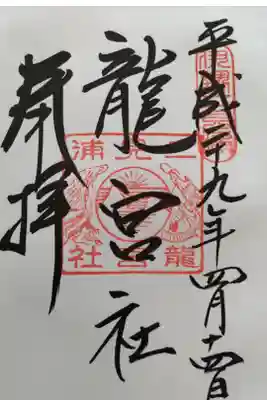 平成二十九年四月十四日
龍宮社
奉拝
二見浦
龍宮社